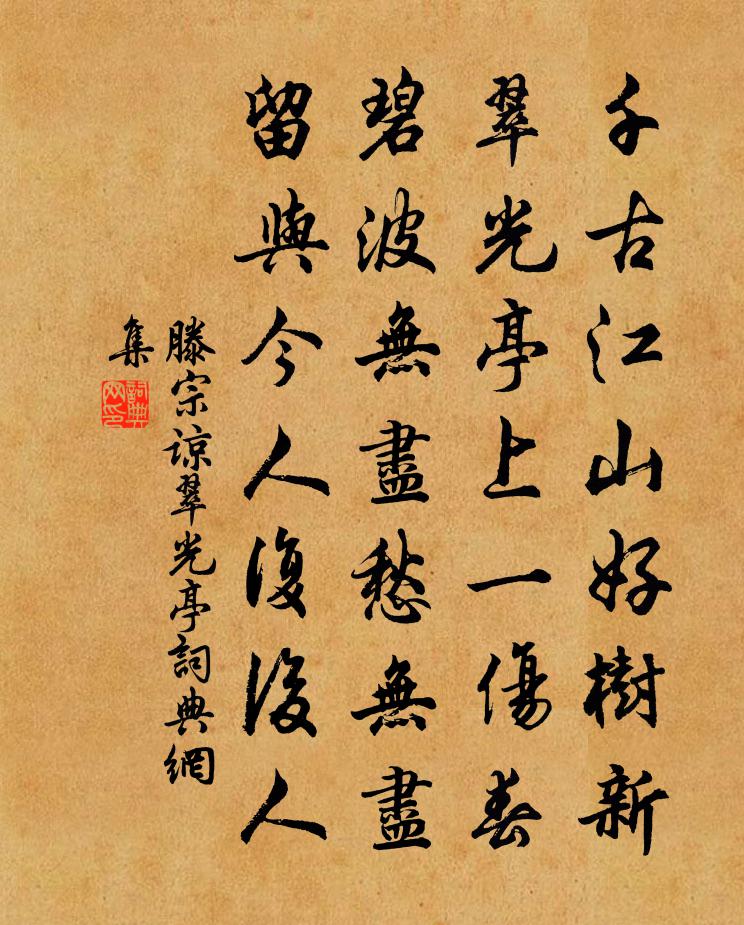 千古江山好樹新
翠光亭上一傷春
碧波無盡愁無盡
留與今人復後人
滕宗諒翠光亭詞典網
集
詞典
网印